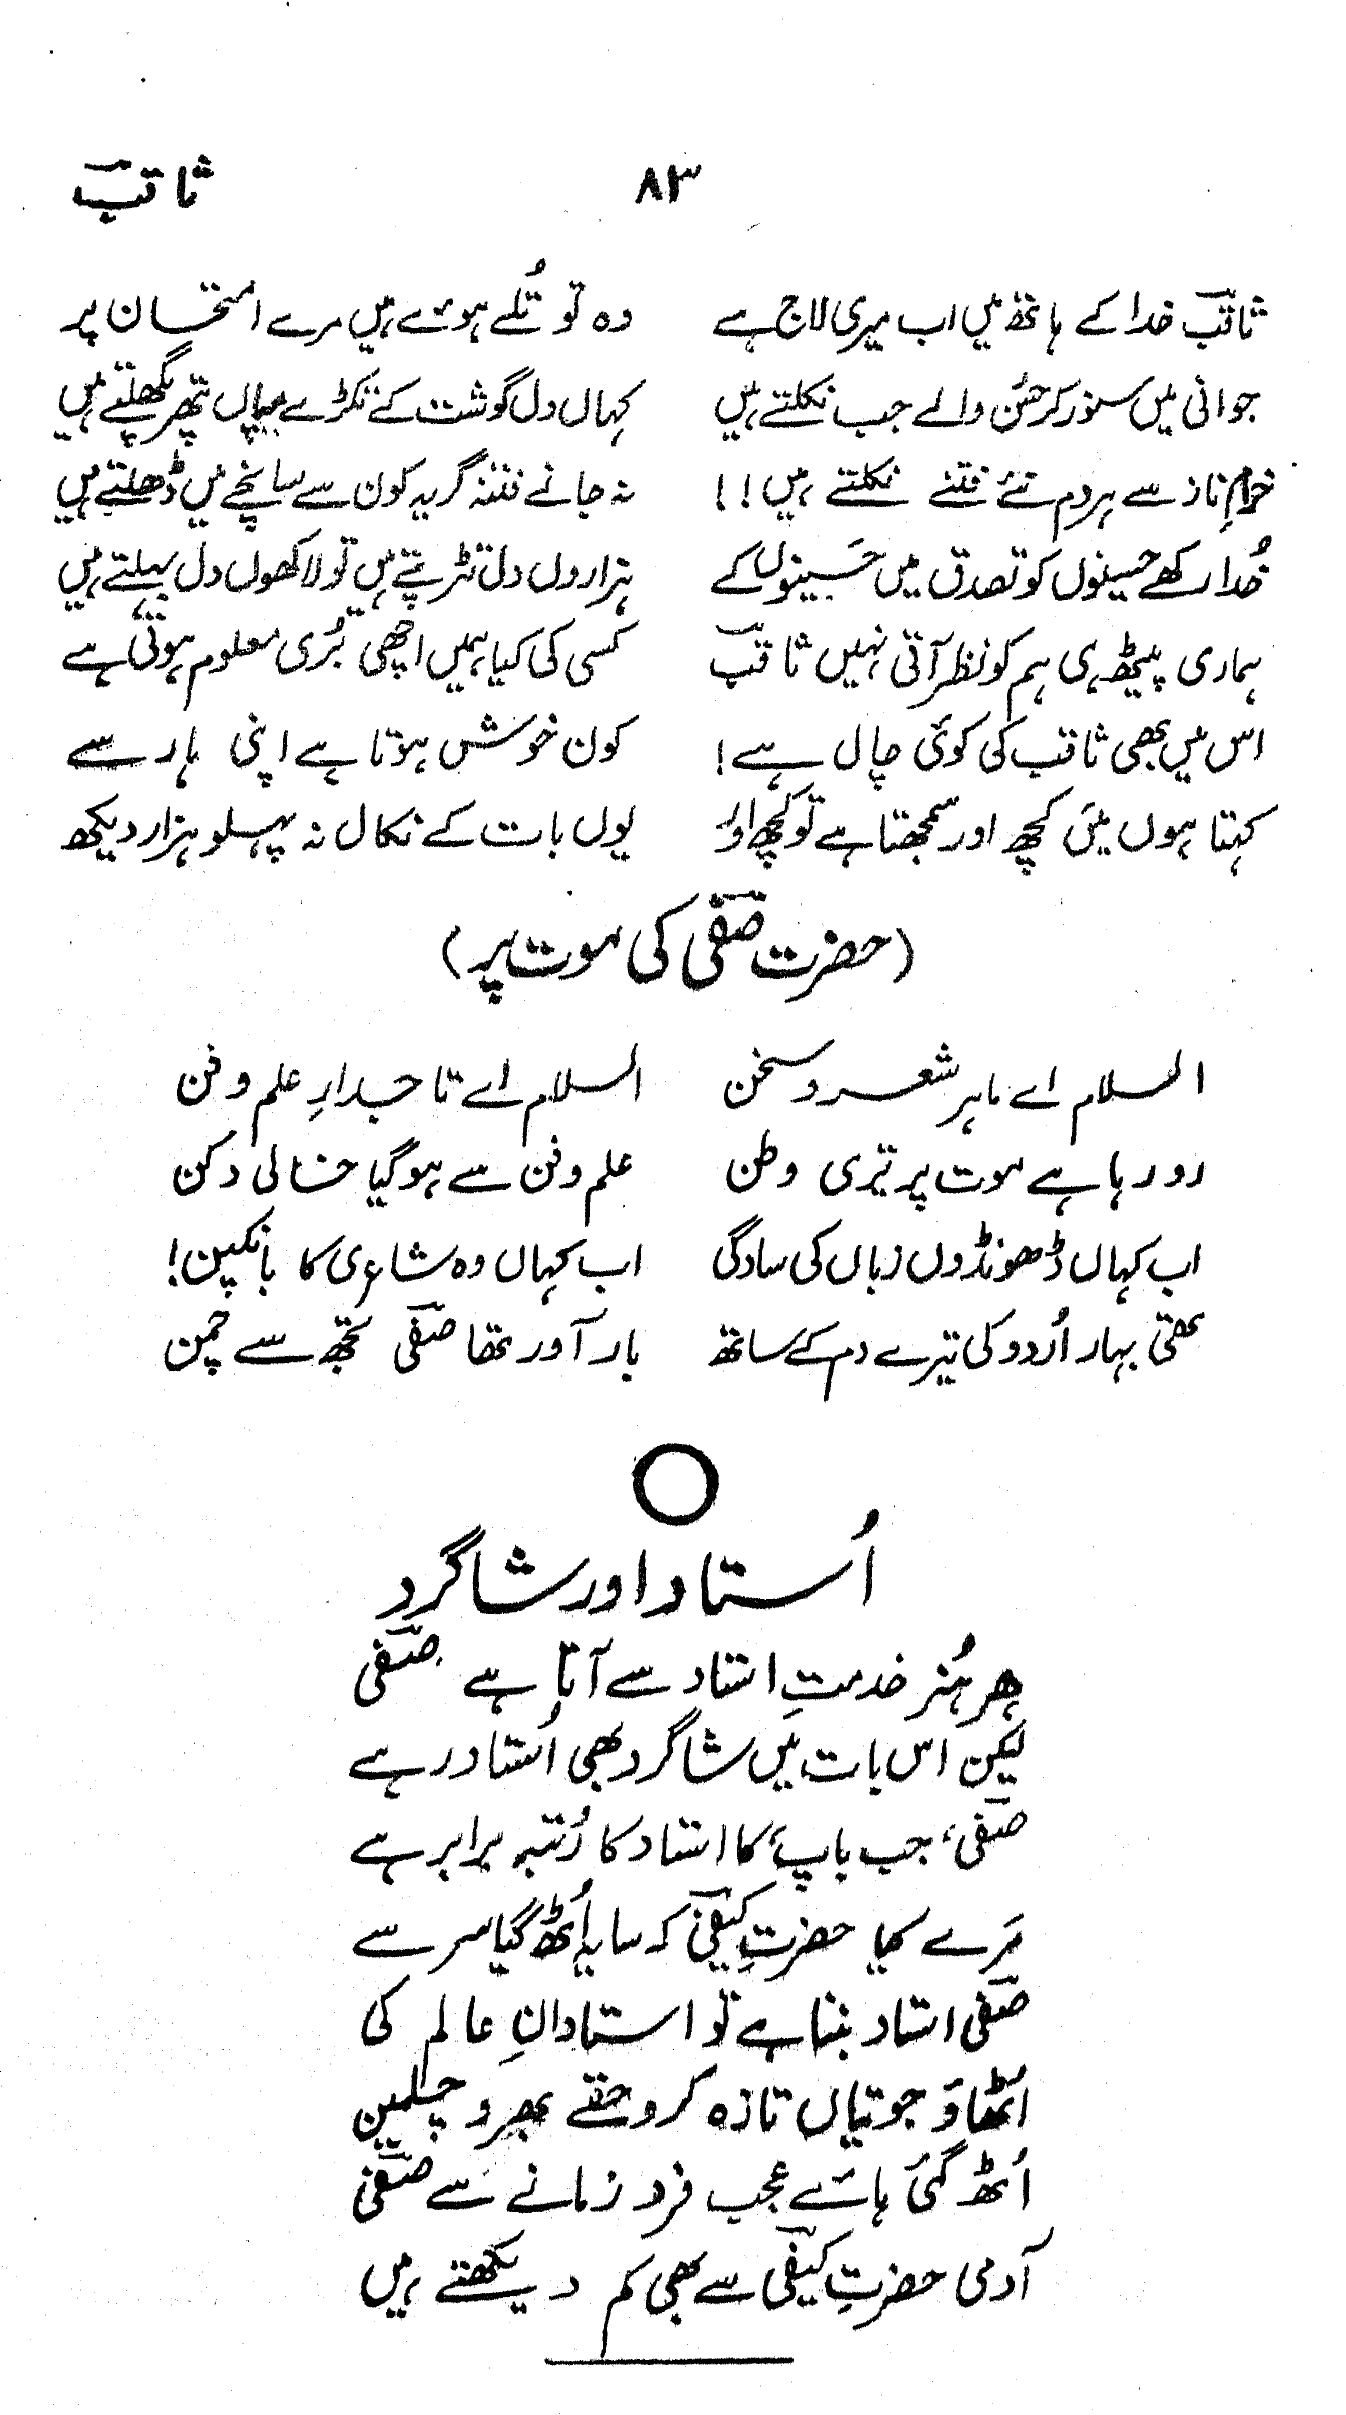 ۸۳ ثاقبؔ
ثاقبؔ خدا کے ہاتھ میں اب میری لاج ہے وہ تو تُلے ہوئے ہیں مرے امتحان پر
جوانی میں سنور کر حُسن والے جب نکلتے ہیں کہاں دل گوشت کے ٹکڑے یہاں پتھر پگھلتے ہیں
خرامِ ناز سے ہر دم نئے فتنے نکلتے ہیں !! نہ جانے فتنہ گر یہ کون سے سانچے میں ڈھلتے ہیں
خُدا رکھے حسینوں کو تصدق میں حسینوں کے ہزاروں دل تڑپتے ہیں تو لاکھوں دل بہلتے ہیں
ہماری پیٹھ ہی ہم کو نظر آتی نہیں ثاقبؔ کسی کی کیا ہمیں اچھی بُری معلوم ہوتی ہے
اس میں بھی ثاقب کی کوئی چال ہے! کون خوش ہوتا ہے اپنی ہار سے
کہتا ہوں میں کچھ اور سمجھتا ہے تو کچھ اور یوں بات کے نکال نہ پہلو ہزار دیکھ
(حضرت صفیؔ کی موت پر)
السلام اے ماہر شعر و سخن السلام اے تاجدارِ علم و فن
رو رہا ہے موت پر تیری وطن علم و فن سے ہو گیا خالی دکن
اب کہاں ڈھونڈوں زباں کی سادگی اب کہاں وہ شاعری کا بانکپن!
تھی بہار اُردو کی تیرے دم کے ساتھ بار آور تھا صفیؔ تجھ سے چمن
اُستاد اور شاگرد
ہر ہُنر خدمتِ استاد سے آتا ہے صفیؔ
لیکن اس بات میں شاگرد بھی اُستاد رہے
صفیؔ، جب باپ کا استاد کا رُتبہ برابر ہے
مَرے کیا حضرتِ کیفیؔ کہ سایہ اُٹھ گیا سر سے
صفیؔ استاد بننا ہے تو استادانِ عالم کی
اُٹھاؤ جوتیاں تازہ کرو حقے بھرو چلمیں
اُٹھ گئی ہائے عجب فرد زمانے سے صفیؔ
آدمی حضرتِ کیفیؔ سے بھی کم دیکھتے ہیں